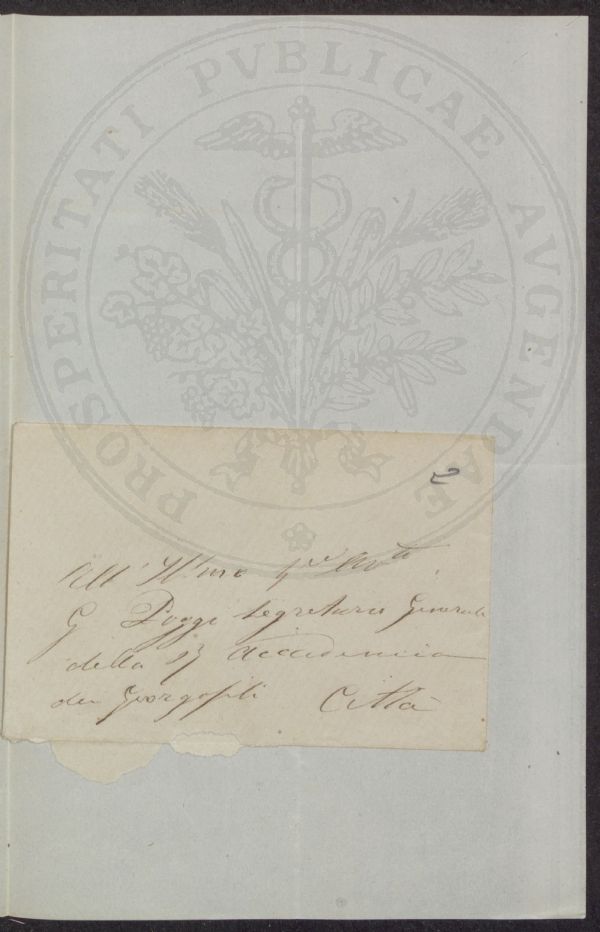 PROSPERITATI PVBLICAE AVGENDAE
All' Ill.mo Sr Avv
G Poggi Segretario Generale
della R Accademia
dei Georgofili Città